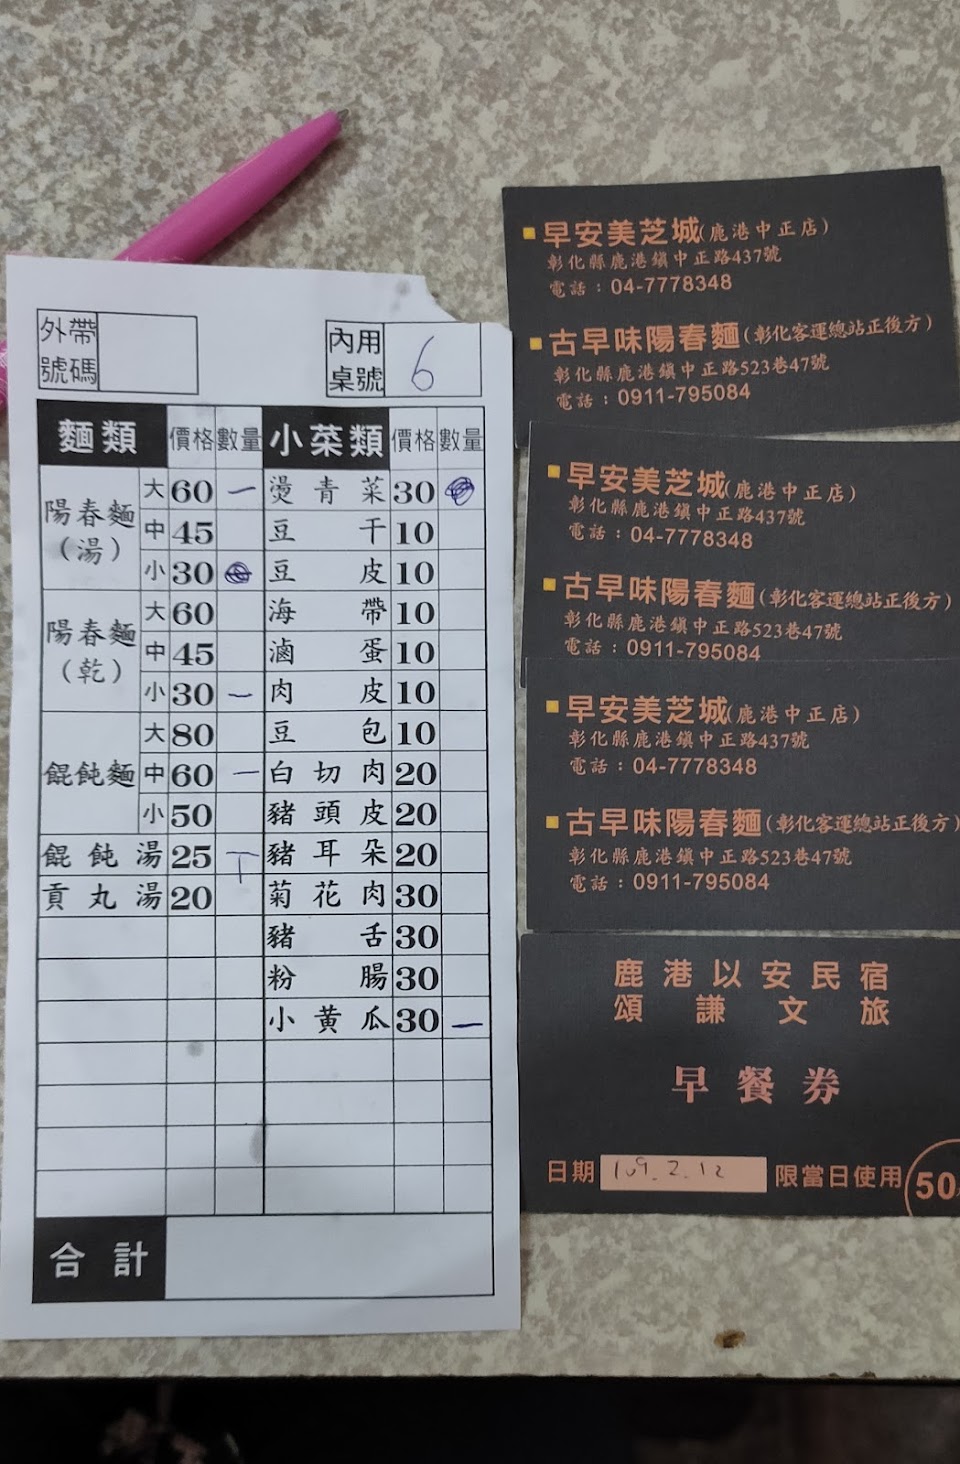 外帶
號碼
內用
桌號 6
麵類 價格 數量 小菜類 價格 數量
陽春麵（湯） 大 60 一 燙青菜 30
中 45 豆干 10
小 30 豆皮 10
陽春麵（乾） 大 60 海帶 10
中 45 滷蛋 10
小 30 一 肉皮 10
餛飩麵 大 80 豆包 10
中 60 一 白切肉 20
小 50 豬頭皮 20
餛飩湯 25 豬耳朵 20
貢丸湯 20 菊花肉 30
豬舌 30
粉腸 30
小黃瓜 30 一
合計
早安美芝城(鹿港中正店)
彰化縣鹿港鎮中正路437號
電話：04-7778348
古早味陽春麵(彰化客運總站正後方)
彰化縣鹿港鎮中正路523巷47號
電話：0911-795084
早安美芝城(鹿港中正店)
彰化縣鹿港鎮中正路437號
電話：04-7778348
古早味陽春麵(彰化客運總站正後方)
彰化縣鹿港鎮中正路523巷47號
電話：0911-795084
早安美芝城(鹿港中正店)
彰化縣鹿港鎮中正路437號
電話：04-7778348
古早味陽春麵(彰化客運總站正後方)
彰化縣鹿港鎮中正路523巷47號
電話：0911-795084
鹿港以安民宿
頌謙文旅
早餐券
日期 109.2.12 限當日使用 50